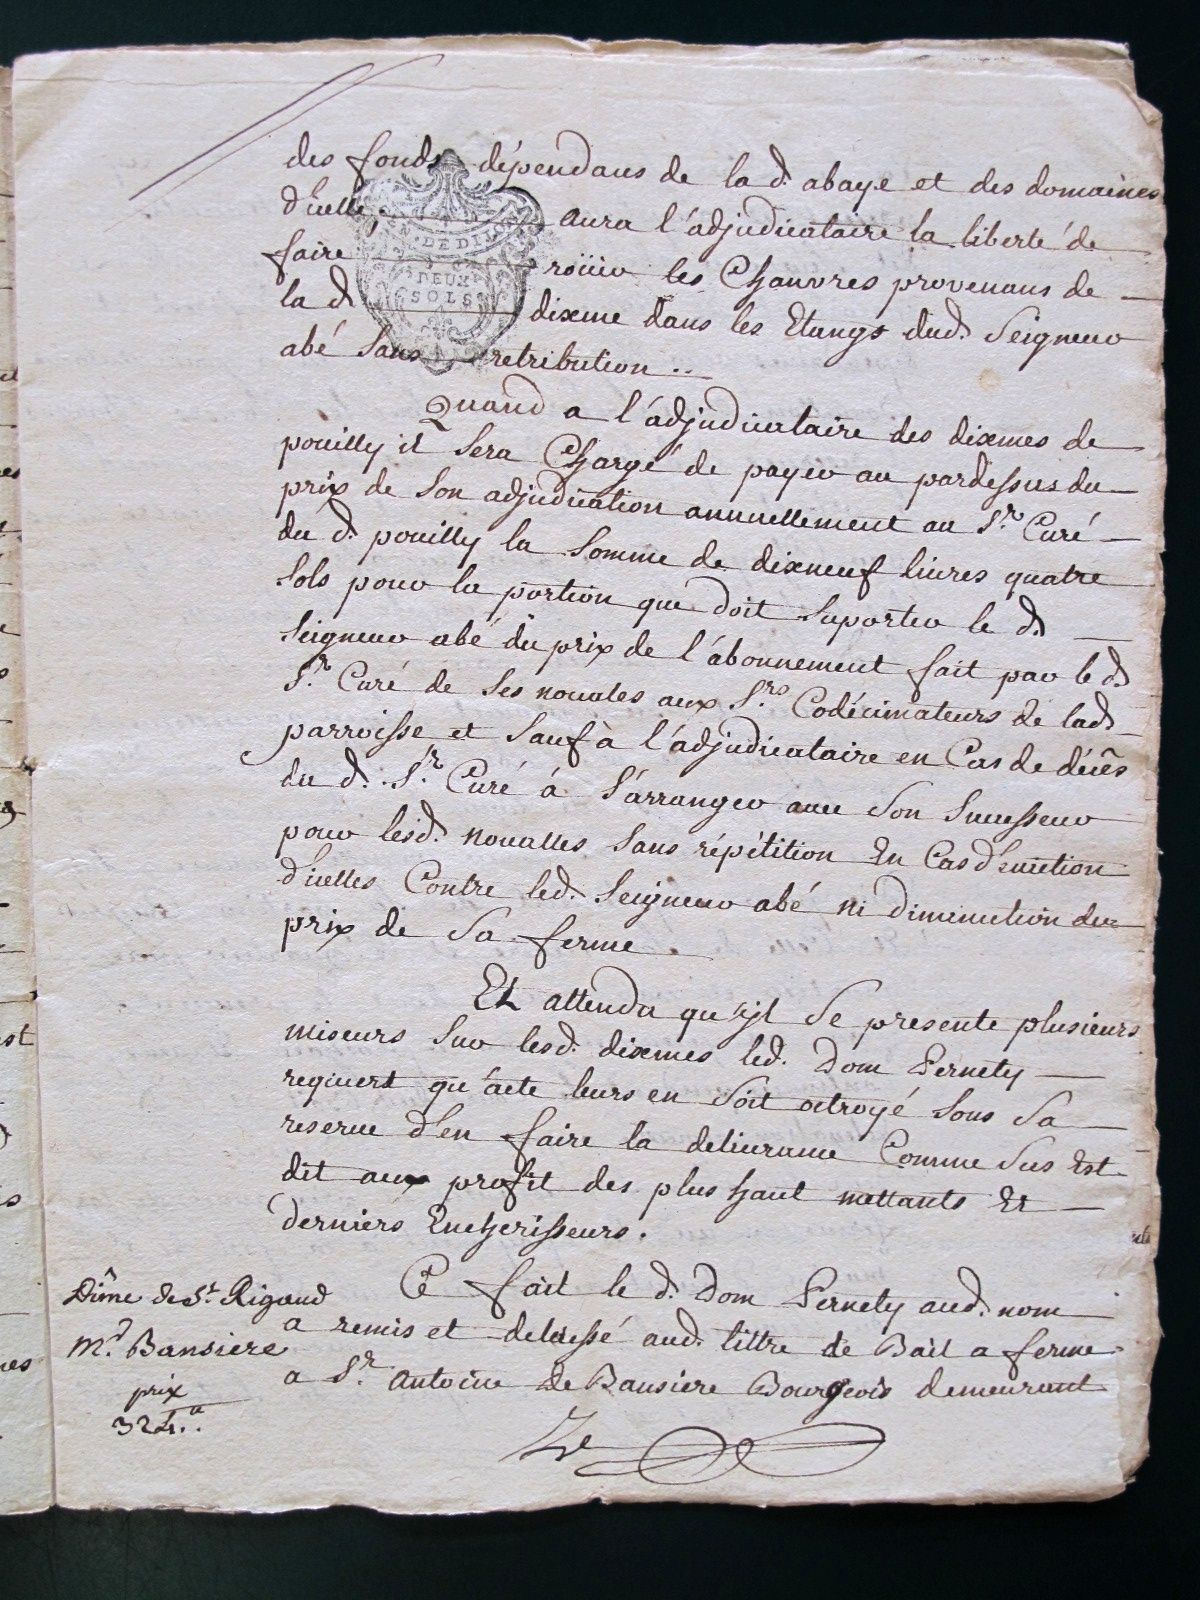 des fonds dépendans de la d. abaye et des domaines
d'icelle aura l'adjudicataire la liberté de
faire roüir les Chanvres provenans de
la d. dixme dans les Etangs dud. Seigneur
abé sans retribution ..
GEN. DE DIJON
DEUX
SOLS
Quand a l'adjudicataire des dixmes de
pouilly il sera Chargé de payer au pardessus du
prix de son adjudication annuellement au Sr. Curé
du d. pouilly la somme de dixneuf livres quatre
sols pour la portion que doit suporter le d.
seigneur abé du prix de l'abonnement fait par le d.
Sr. Curé de ses novales aux Srs. Codécimateurs de lad.
parroisse et sauf à l'adjudicataire en Cas de décês
du d. Sr. Curé á s'arranger avec son successeur
pour lesd. novalles sans répétition En Cas d'éviction
d'icelles Contre led. Seigneur abé ni diminution du
prix de sa ferme
Et attendu qu'ijl se presente plusieurs
miseurs sur lesd. dixmes led. Dom Pernety
requiert qu'acte leurs en soit octroyé sous sa
reserve d'en faire la delivrance Comme sus Est
dit aux profit des plus haut mettants Et
derniers Encherisseurs.
Dîme de St. Rigaud
Md. Bansiere
prix
324.tt
Ce fait le d. Dom Pernety aud. nom
a remis et delaissé aud. tittre de Bail a ferme
a Sr. Antoine de Bansiere Bourgeois demeurant